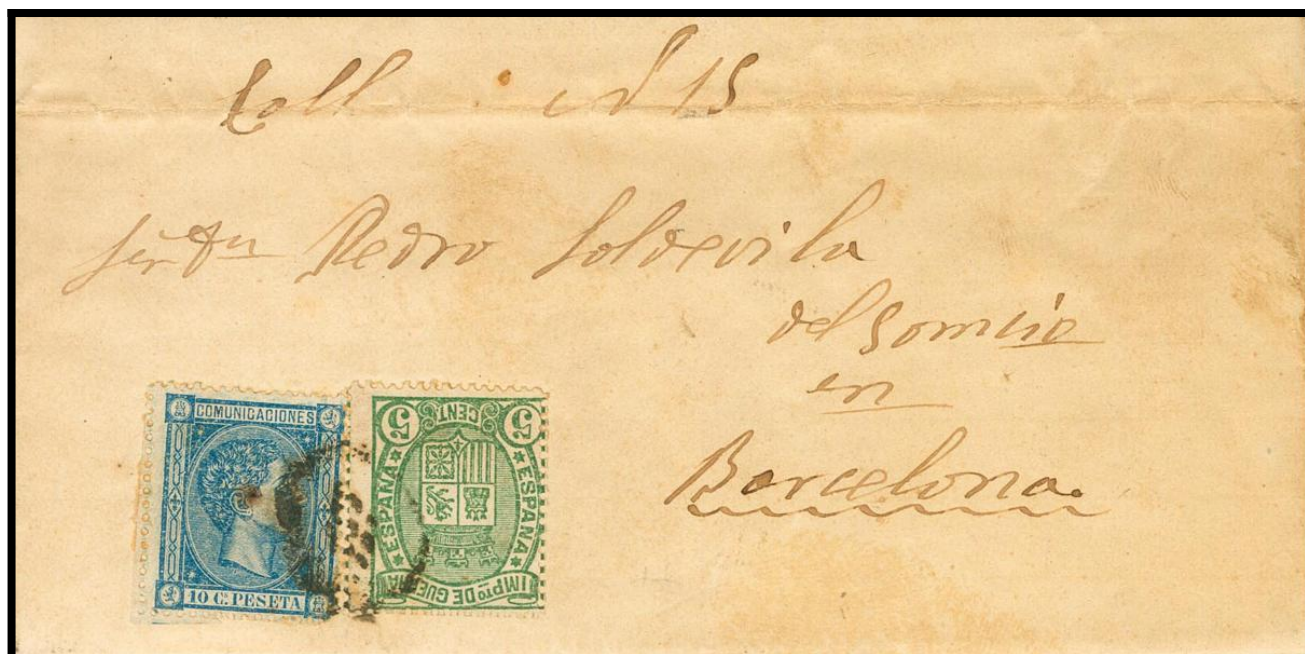 Coll nº 15
Señ Dn Pedro Soldevila
del Comcio
en
Barcelona
COMUNICACIONES
10 C. PESETA
5 CENT. 5
ESPAÑA
ESPAÑA
IMPto DE GUERRA